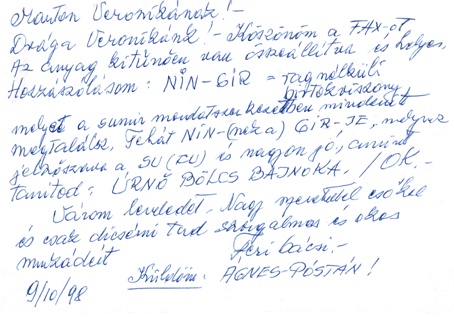 Marton Veronikának!-
Drága Veronikánk!- Köszönöm a FAX-ot
Az anyag kitünően van összeállítva és helyes,
Hozzászólásom: NIN-GIR = ragnélküli
birtokviszony
melyet a sumir mondatszerkezetben mindenütt
megtalálsz. Tehát NIN-(nek a) GIR-JE, melynek
jelzőszava a SU(CU) és nagyon jó, amint
Tanítod: ÚRNŐ BÖLCS BAJNOKA. / OK.-
Várom leveledet. Nagy szeretettel csókol
és csak dicsérni tud szorgalmas és okos
munkádért Feri bácsi.-
Küldöm: AGNES-PÓSTÁN!
9/10/98